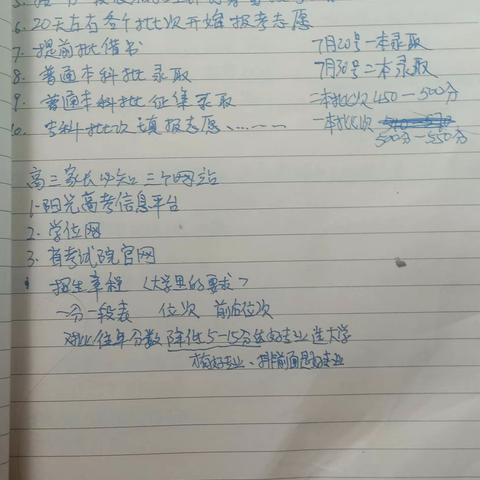 6. 20天左右各个批次开始报考志愿
7. 提前批借书
7月20号一本录取
8. 普通本科批录取
7月30号二本录取
9. 普通本科批征集录取
二本批次450—500分
10. 专科批次填报志愿……
一本批次
500分—550分
高三家长必知三个网站
1. 阳光高考信息平台
2. 学位网
3. 省考试院官网
招生章程（大学里的要求）
一分一段表 位次 前后位次
对比往年分数降低5-15分